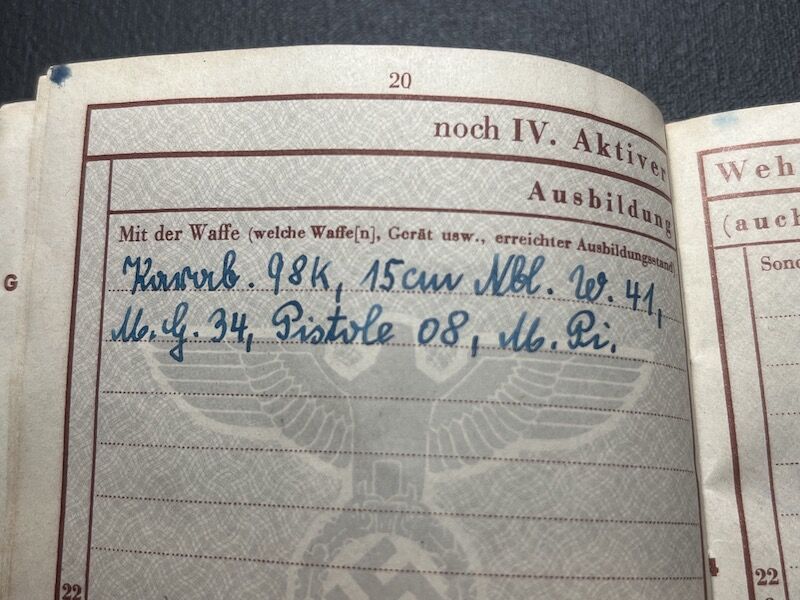 20
noch IV. Aktiver
Ausbildung
Mit der Waffe (welche Waffe[n], Gerät usw., erreichter Ausbildungsstand)
Karab. 98K, 15cm Nbl. W. 41,
M.G. 34, Pistole 08, M. Pi.
22
G
Weh
(auch
Sond
22